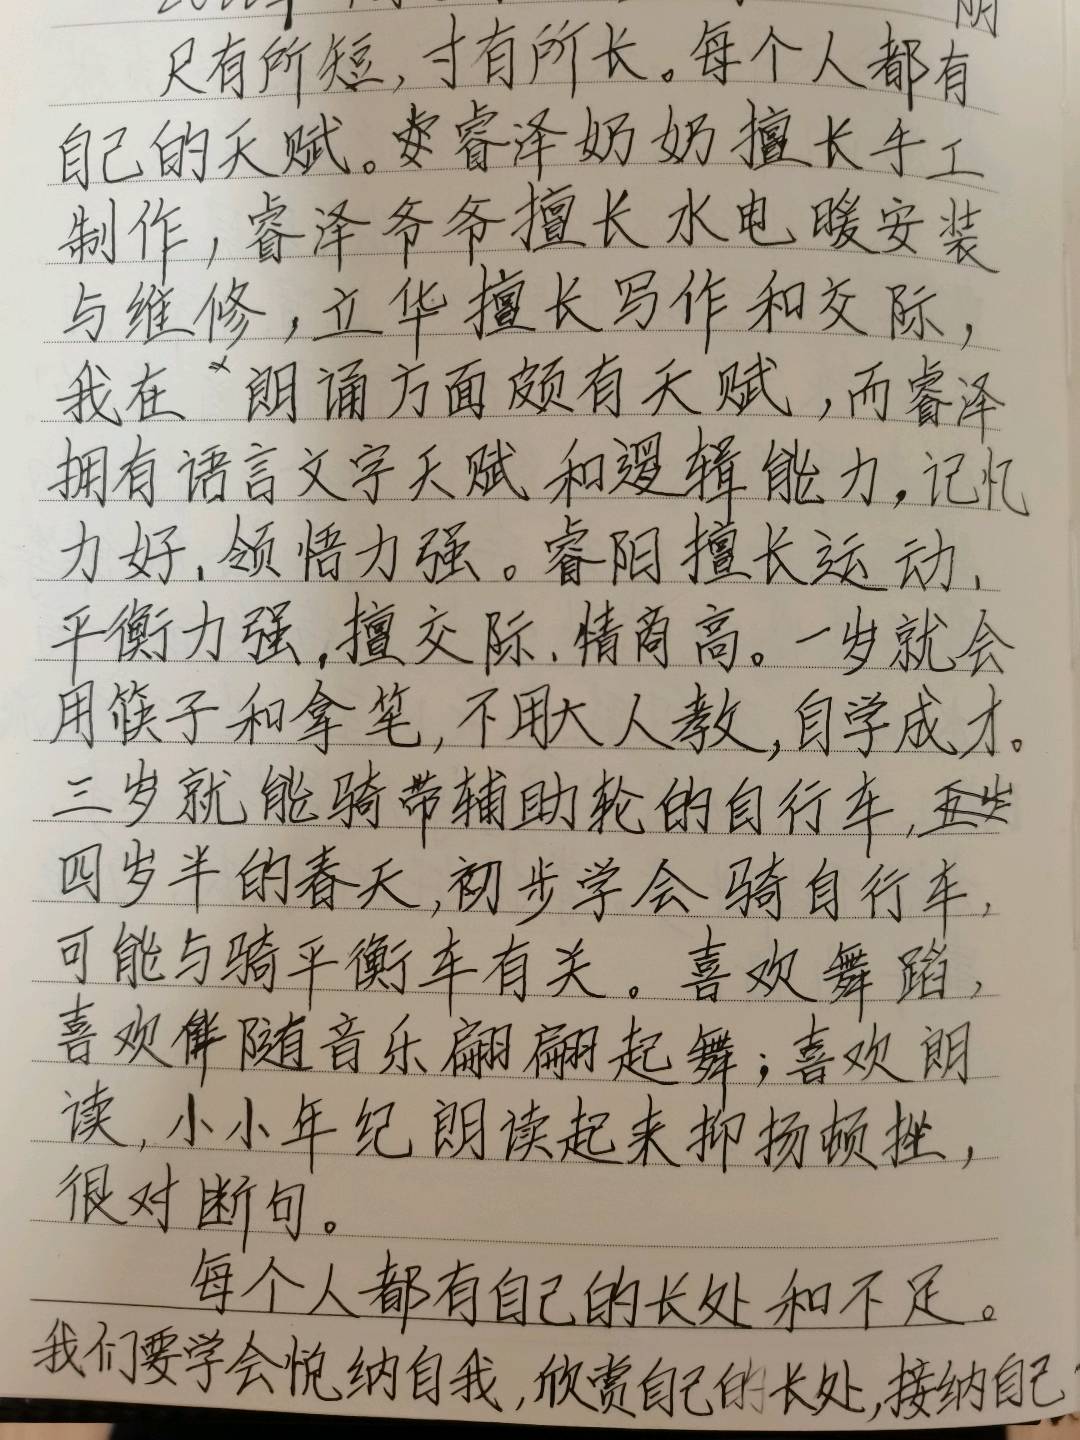 尺有所短,寸有所长。每个人都有
自己的天赋。睿泽奶奶擅长手工
制作,睿泽爷爷擅长水电暖安装
与维修,立华擅长写作和交际,
我在朗诵方面颇有天赋,而睿泽
拥有语言文字天赋和逻辑能力,记忆
力好、领悟力强。睿阳擅长运动、
平衡力强,擅交际、情商高。一岁就会
用筷子和拿笔,不用大人教,自学成才。
三岁就能骑带辅助轮的自行车,
四岁半的春天,初步学会骑自行车,
可能与骑平衡车有关。喜欢舞蹈,
喜欢伴随音乐翩翩起舞;喜欢朗
读,小小年纪朗读起来抑扬顿挫,
很对断句。
每个人都有自己的长处和不足。
我们要学会悦纳自我,欣赏自己的长处,接纳自己